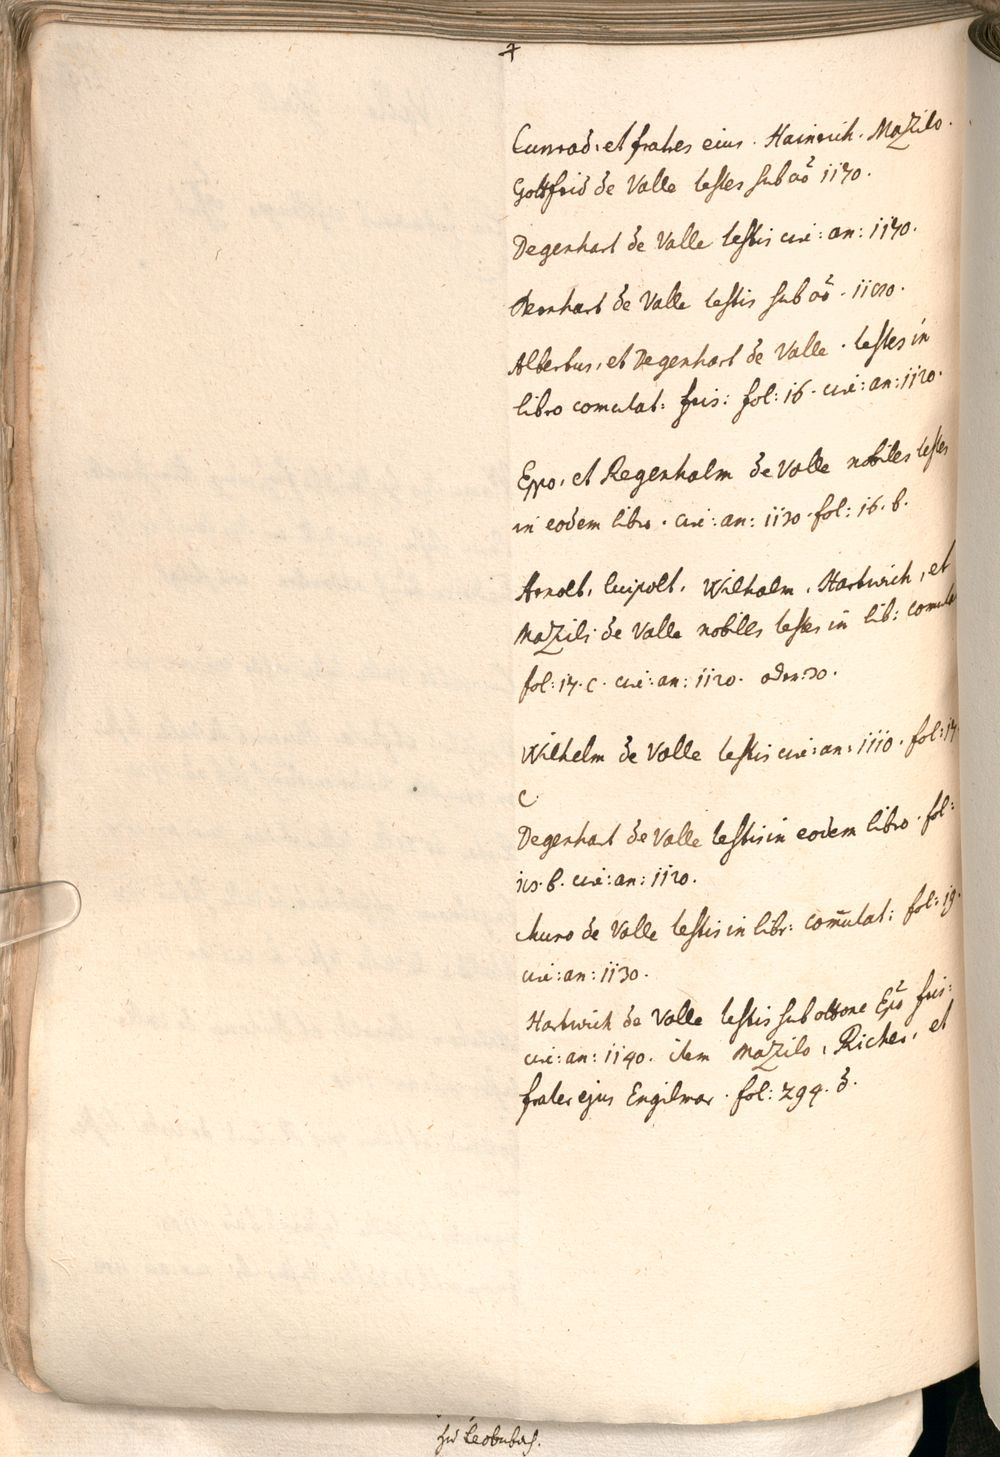 Cunrad, et frates eius. Hainrich. Mazilo.
Gottfrid de Valle testes sub aō 1170.
Degenhart de Valle testis circ: an: 1170.
Pernhart de Valle testis sub aō. 1180.
Albertus, et Degenhart de Valle. testes in
libro comutat: fris: fol: 16. circ: an: 1120.
Eppo, et Regenhalm de Valle nobiles testes
in eodem libro. circ: an: 1130. fol: 16. b.
Arnolt, Luipolt, Wilhalm, Hartwich, et
Mazili de Valle nobiles testes in lib: comuta
fol: 17. c. circ: an: 1120. oder 30.
Wilhelm de Valle testis circ: an: 1110. fol: 17.
c.
Degenhart de Valle testis in eodem libro. fol:
18. b. circ: an: 1120.
Chuno de Valle testis in libr: com̄utat: fol: 19.
circ: an: 1130.
Hartwich de Valle testis sub ottone Epō fris:
circ: an: 1140. item Mazilo, Richer, et
frater ejus Engilmar. fol: 294. d.